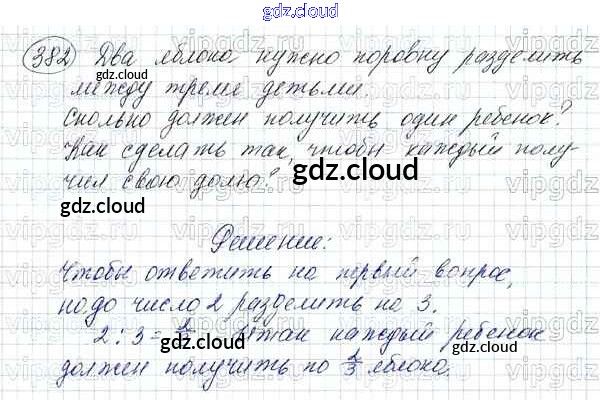 gdz.cloud
382 Два яблока нужно поровну разделить
между тремя детьми.
Сколько должен получить один ребенок?
Как сделать так, чтобы каждый полу-
чил свою долю?
Решение:
Чтобы ответить на первый вопрос,
надо число 2 разделить на 3.
2 : 3 = 2/3 Итак каждый ребенок
должен получить по 2/3 яблока.
gdz.cloud
gdz.cloud
gdz.cloud
gdz.cloud
gdz.cloud
gdz.cloud
gdz.cloud
vipgdz